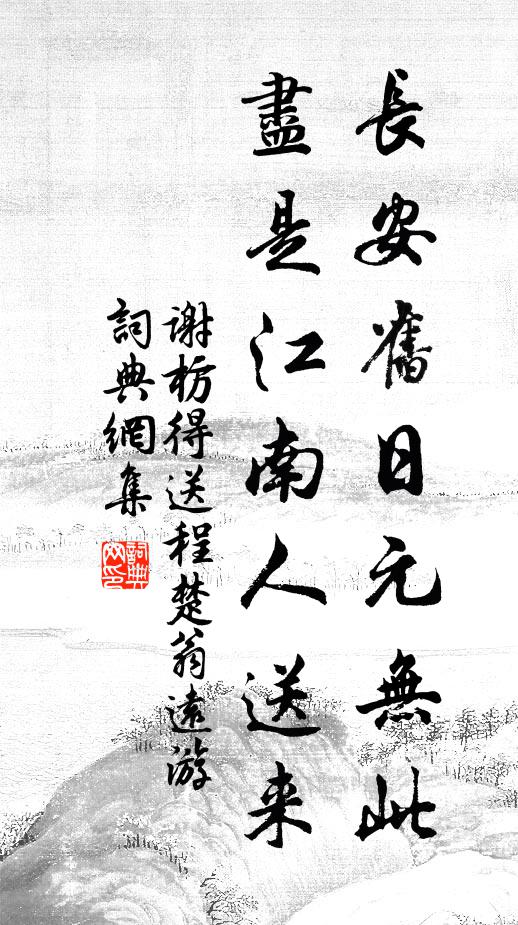 長安舊日元無此
盡是江南人送来
谢枋得送程楚翁遠游
詞典網集
詞典
网印